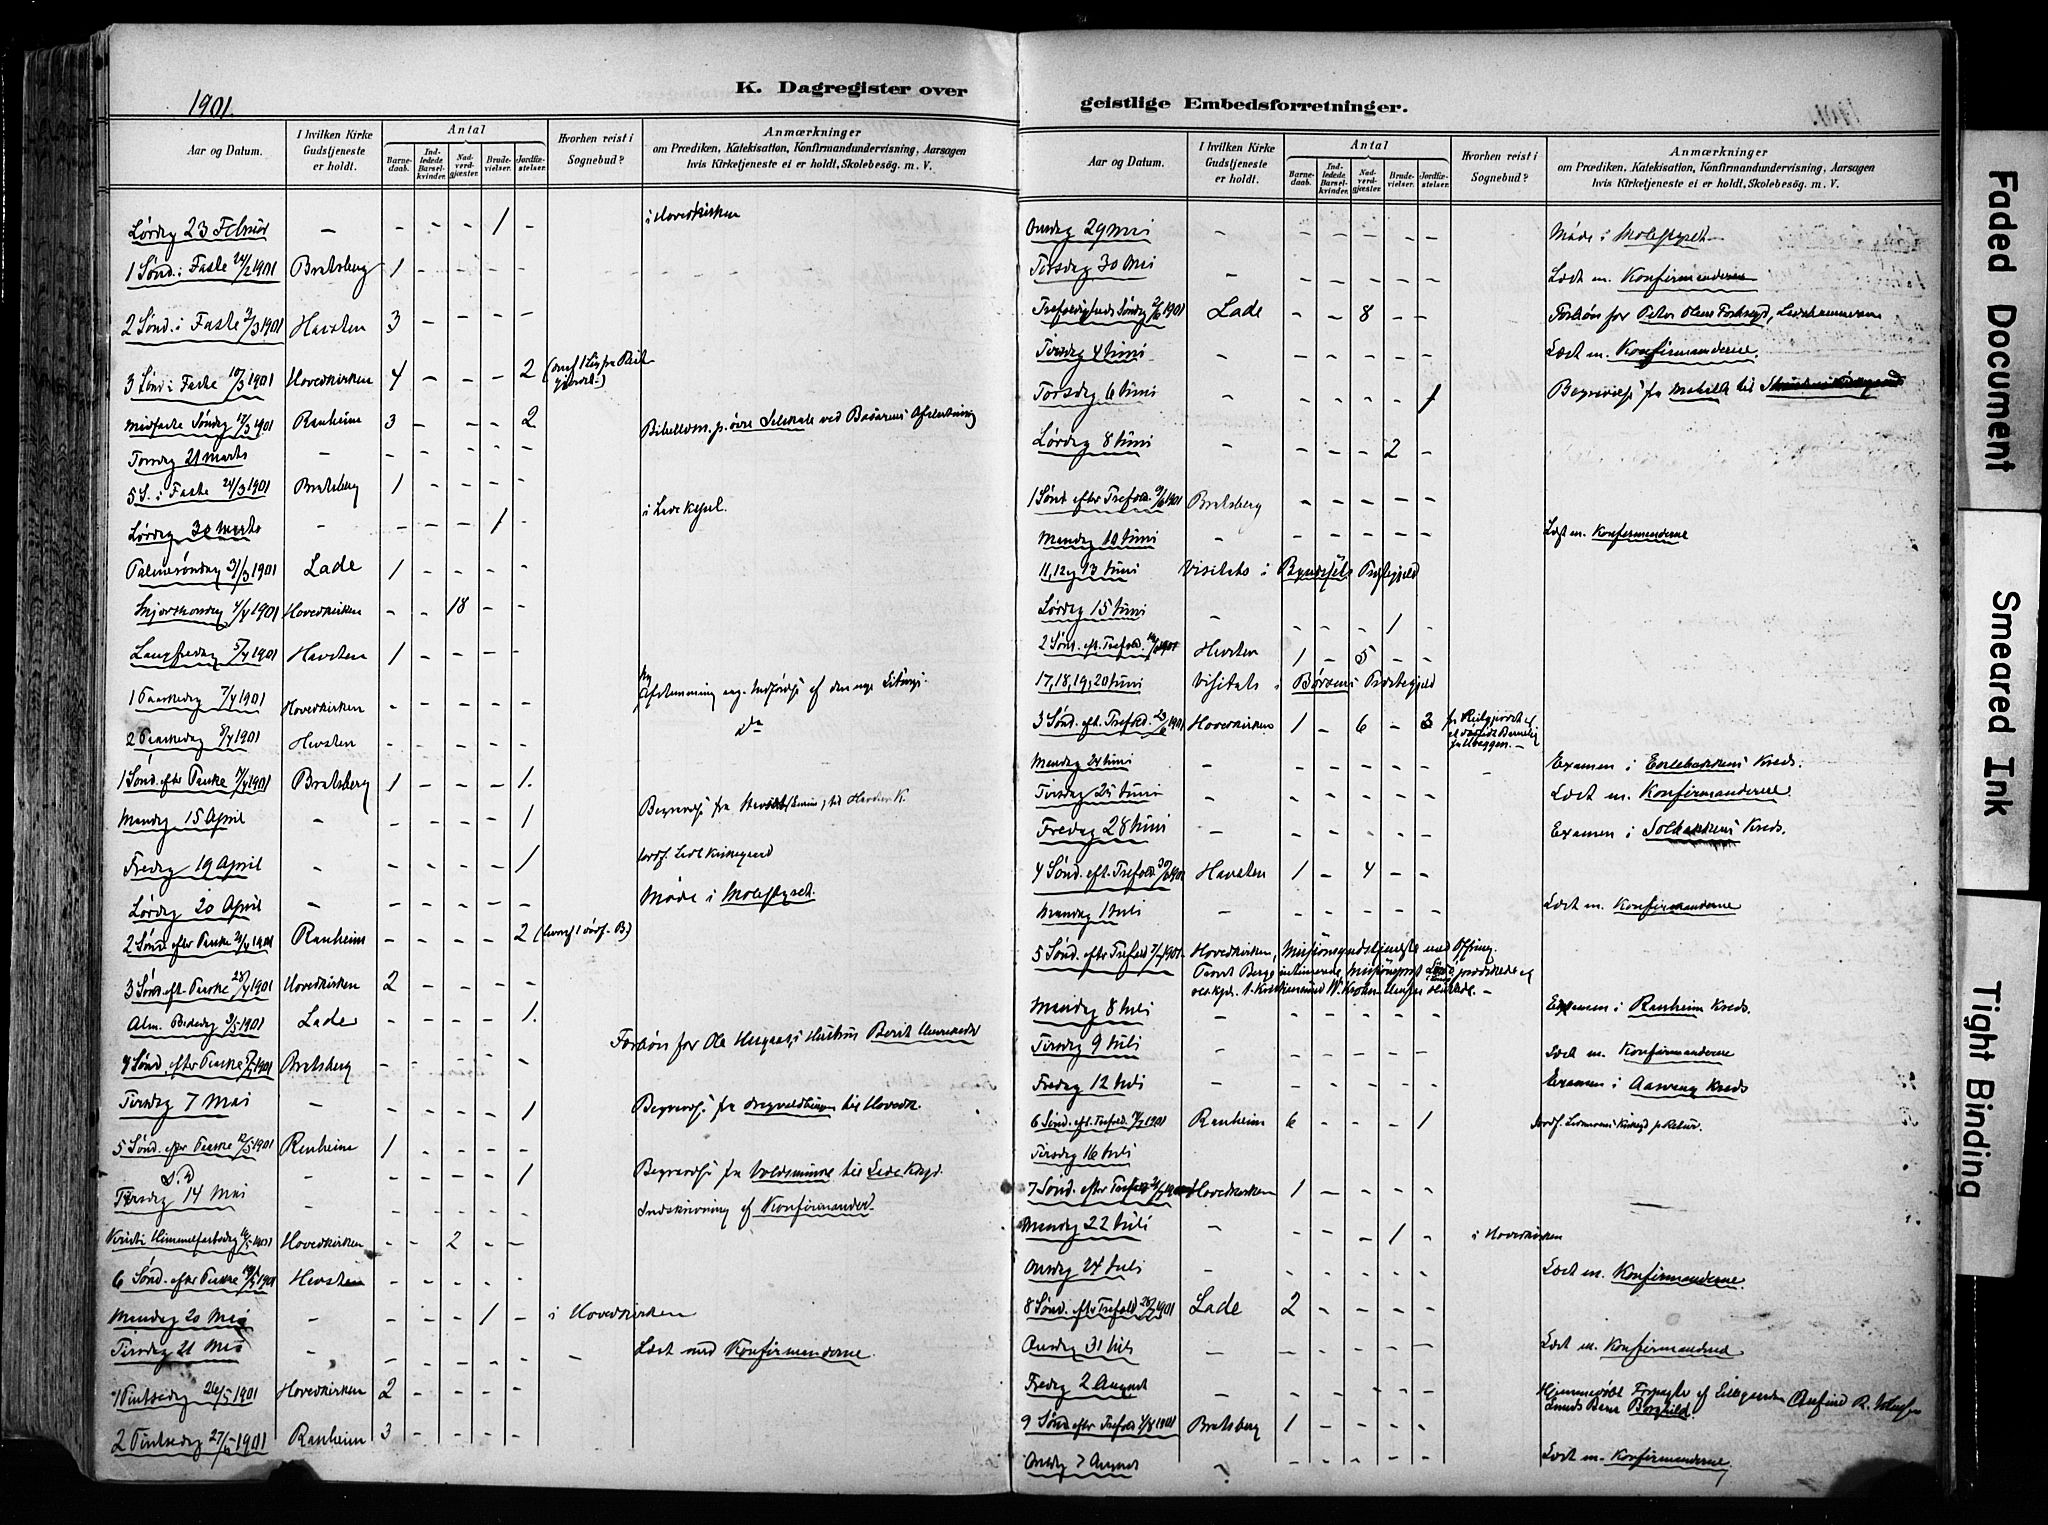 1901.
K. Dagregister over
Aar og Datum.
I hvilken Kirke Gudstjeneste er holdt.
Antal
Barne-daab.
Ind-ledede Barsel-kvinder.
Nad-verd-gjæster.
Brude-vielser.
Jordfæ-stelser.
Hvorhen reist i Sognebud?
Anmærkninger
om Prædiken, Katekisation, Konfirmandundervisning, Aarsagen
hvis Kirketjeneste ei er holdt, Skolebesøg. m. V.
Lørdag 23 Februar - - - - 1 - i Hovedkirken
1 Sønd. i Faste 24/2 1901 Bratsberg 1 - - - -
2 Sønd. i Faste 3/3 1901 Havsten 3 - - - -
3 Sønd. i Faste 10/3 1901 Hovedkirken 4 - - - 2
Midfaste Søndag 17/3 1901 Ranheim 3 - - - 2
Torsdag 21 Marts - - - - - - Bibellæsn. p. øvre
5 S. i Faste 24/3 1901 Bratsberg 1 - - - -
Lørdag 30 Marts - - - - 1 - i Lade Kapel.
Palmesøndag 31/3 1901 Lade 1 - - - -
Skjærthorsdag 4/4 1901 Hovedkirken - - 18 - -
Langfredag 5/4 1901 Havsten 1 - - - -
1 Paaskedag 7/4 1901 Hovedkirken - - - - - Afstemning ang. Indførelse af den nye Liturgi.
2 Paaskedag 8/4 1901 Havsten - - - - - do
1 Sønd. efter Paaske 14/4 1901 Bratsberg 1 - - - 1.
Mandag 15 April - - - - - 1 Begravelse fra til Havsten K.
Fredag 19 April - - - - - 1 Jordf. Lade Kirkegaard
Lørdag 20 April - - - - - - Møde i Molestyret.
2 Sønd. efter Paaske 21/4 1901 Ranheim - - - - 2
3 Sønd. eft. Paaske 28/4 1901 Hovedkirken 2 - - - -
Alm. Bededag 3/5 1901 Lade - - - - 1.
4 Sønd. efter Paaske 5/5 1901 Bratsberg - - - - - Forbøn for Ole Hustru Berit
Tirsdag 7 Mai - - - - - 1 Begravelse fra til Hovedk.
5 Sønd. efter Paaske 12/5 1901 Ranheim 1 - - - -
S. D - - - - - 1 Begravelse fra Voldsminde til Lade Kapel.
Tirsdag 14 Mai - - - - - - Indskrivning af Konfirmander
Kristi Himmelfartsdag 16/5 1901 Hovedkirken - - 2 - -
6 Sønd. efter Paaske 19/5 1901 Havsten - - - - -
Mandag 20 Mai - - - - 1 - i Hovedkirken
Tirsdag 21 Mai - - - - - - - Læst med Konfirmanderne.
1 Pintsedag 26/5 1901 Hovedkirken 2 - - - -
2 Pintsedag 27/5 1901 Ranheim 3 - - - -
geistlige Embedsforretninger.
1901.
Aar og Datum.
I hvilken Kirke Gudstjeneste er holdt.
Antal
Barne-daab.
Ind-ledede Barsel-kvinder.
Nad-verd-gjæster.
Brude-vielser.
Jordfæ-stelser.
Hvorhen reist i Sognebud?
Anmærkninger
om Prædiken, Katekisation, Konfirmandundervisning, Aarsagen
hvis Kirketjeneste ei er holdt, Skolebesøg. m. V.
Onsdag 29 Mai - - - - - - Møde i Molestyret
Torsdag 30 Mai - - - - - - Læst m. Konfirmanderne
Trefoldigheds Søndag 2/6 1901 Lade - - 8 - - Forbøn for Peter Olsen
Tirsdag 4 Juni - - - - - - Læst m. Konfirmanderne.
Torsdag 6 Juni - - - - - 1 Begravelse fra til
Lørdag 8 Juni - - - - 2 -
1 Sønd efter Trefold. 9/6 1901 Bratsberg - - - - -
Mandag 10 Juni - - - - - - Læst m. Konfirmanderne
11, 12 og 13 Juni Visitats i Byneslets Præstegjeld
Lørdag 15 Juni - - - - 1 -
2 Sønd. eft. Trefold. 16/6 1901 Havsten 1 - 5 - -
17, 18, 19, 20 Juni Visitats i Børsens Præstegjeld
3 Sønd. eft. Trefold. 23/6 1901 Hovedkirken 1 - 6 - 3
Mandag 24 Juni - - - - - - - Examen i Kreds.
Tirsdag 25 Juni - - - - - - Læst m. Konfirmanderne
Fredag 28 Juni - - - - - - Examen i Solbakkens Kreds.
4 Sønd. eft. Trefold 30/6 1901 Havsten 1 - 4 - -
Mandag 1 Juli - - - - - - Læst m. Konfirmanderne
5 Sønd. efter Trefold 7/7 1901 Hovedkirken, Missionsgudstjeneste med Offring.
Mandag 8 Juli - - - - - - Examen i Ranheim Kreds.
Tirsdag 9 Juli - - - - - - Læst m. Konfirmanderne
Fredag 12 Juli - - - - - - Examen i Aasvang Kreds
6 Sønd. eft. Trefold. 14/7 1901 Ranheim 6 - - - 1
Tirsdag 16 Juli
7 Sønd. efter Trefold 21/7 1901 Hovedkirken 1 - - - -
Mandag 22 Juli - - - - 1 - i Hovedkirken
Onsdag 24 Juli - - - - - - Læst m. Konfirmanderne.
8 Sønd. efter Trefold 28/7 1901 Lade 2 - - - -
Onsdag 31 Juli - - - - - - Læst m. Konfirmanderne
Fredag 2 August - - - - - - Hjemmedøbt Forpagter af
9 Sønd efter Trefold 4/8 1901 Bratsberg 1 - - - - Barn Borghild
Onsdag 7 August - - - - - Læst m. Konfirmanderne.
Faded Document
Smeared Ink
Tight Binding